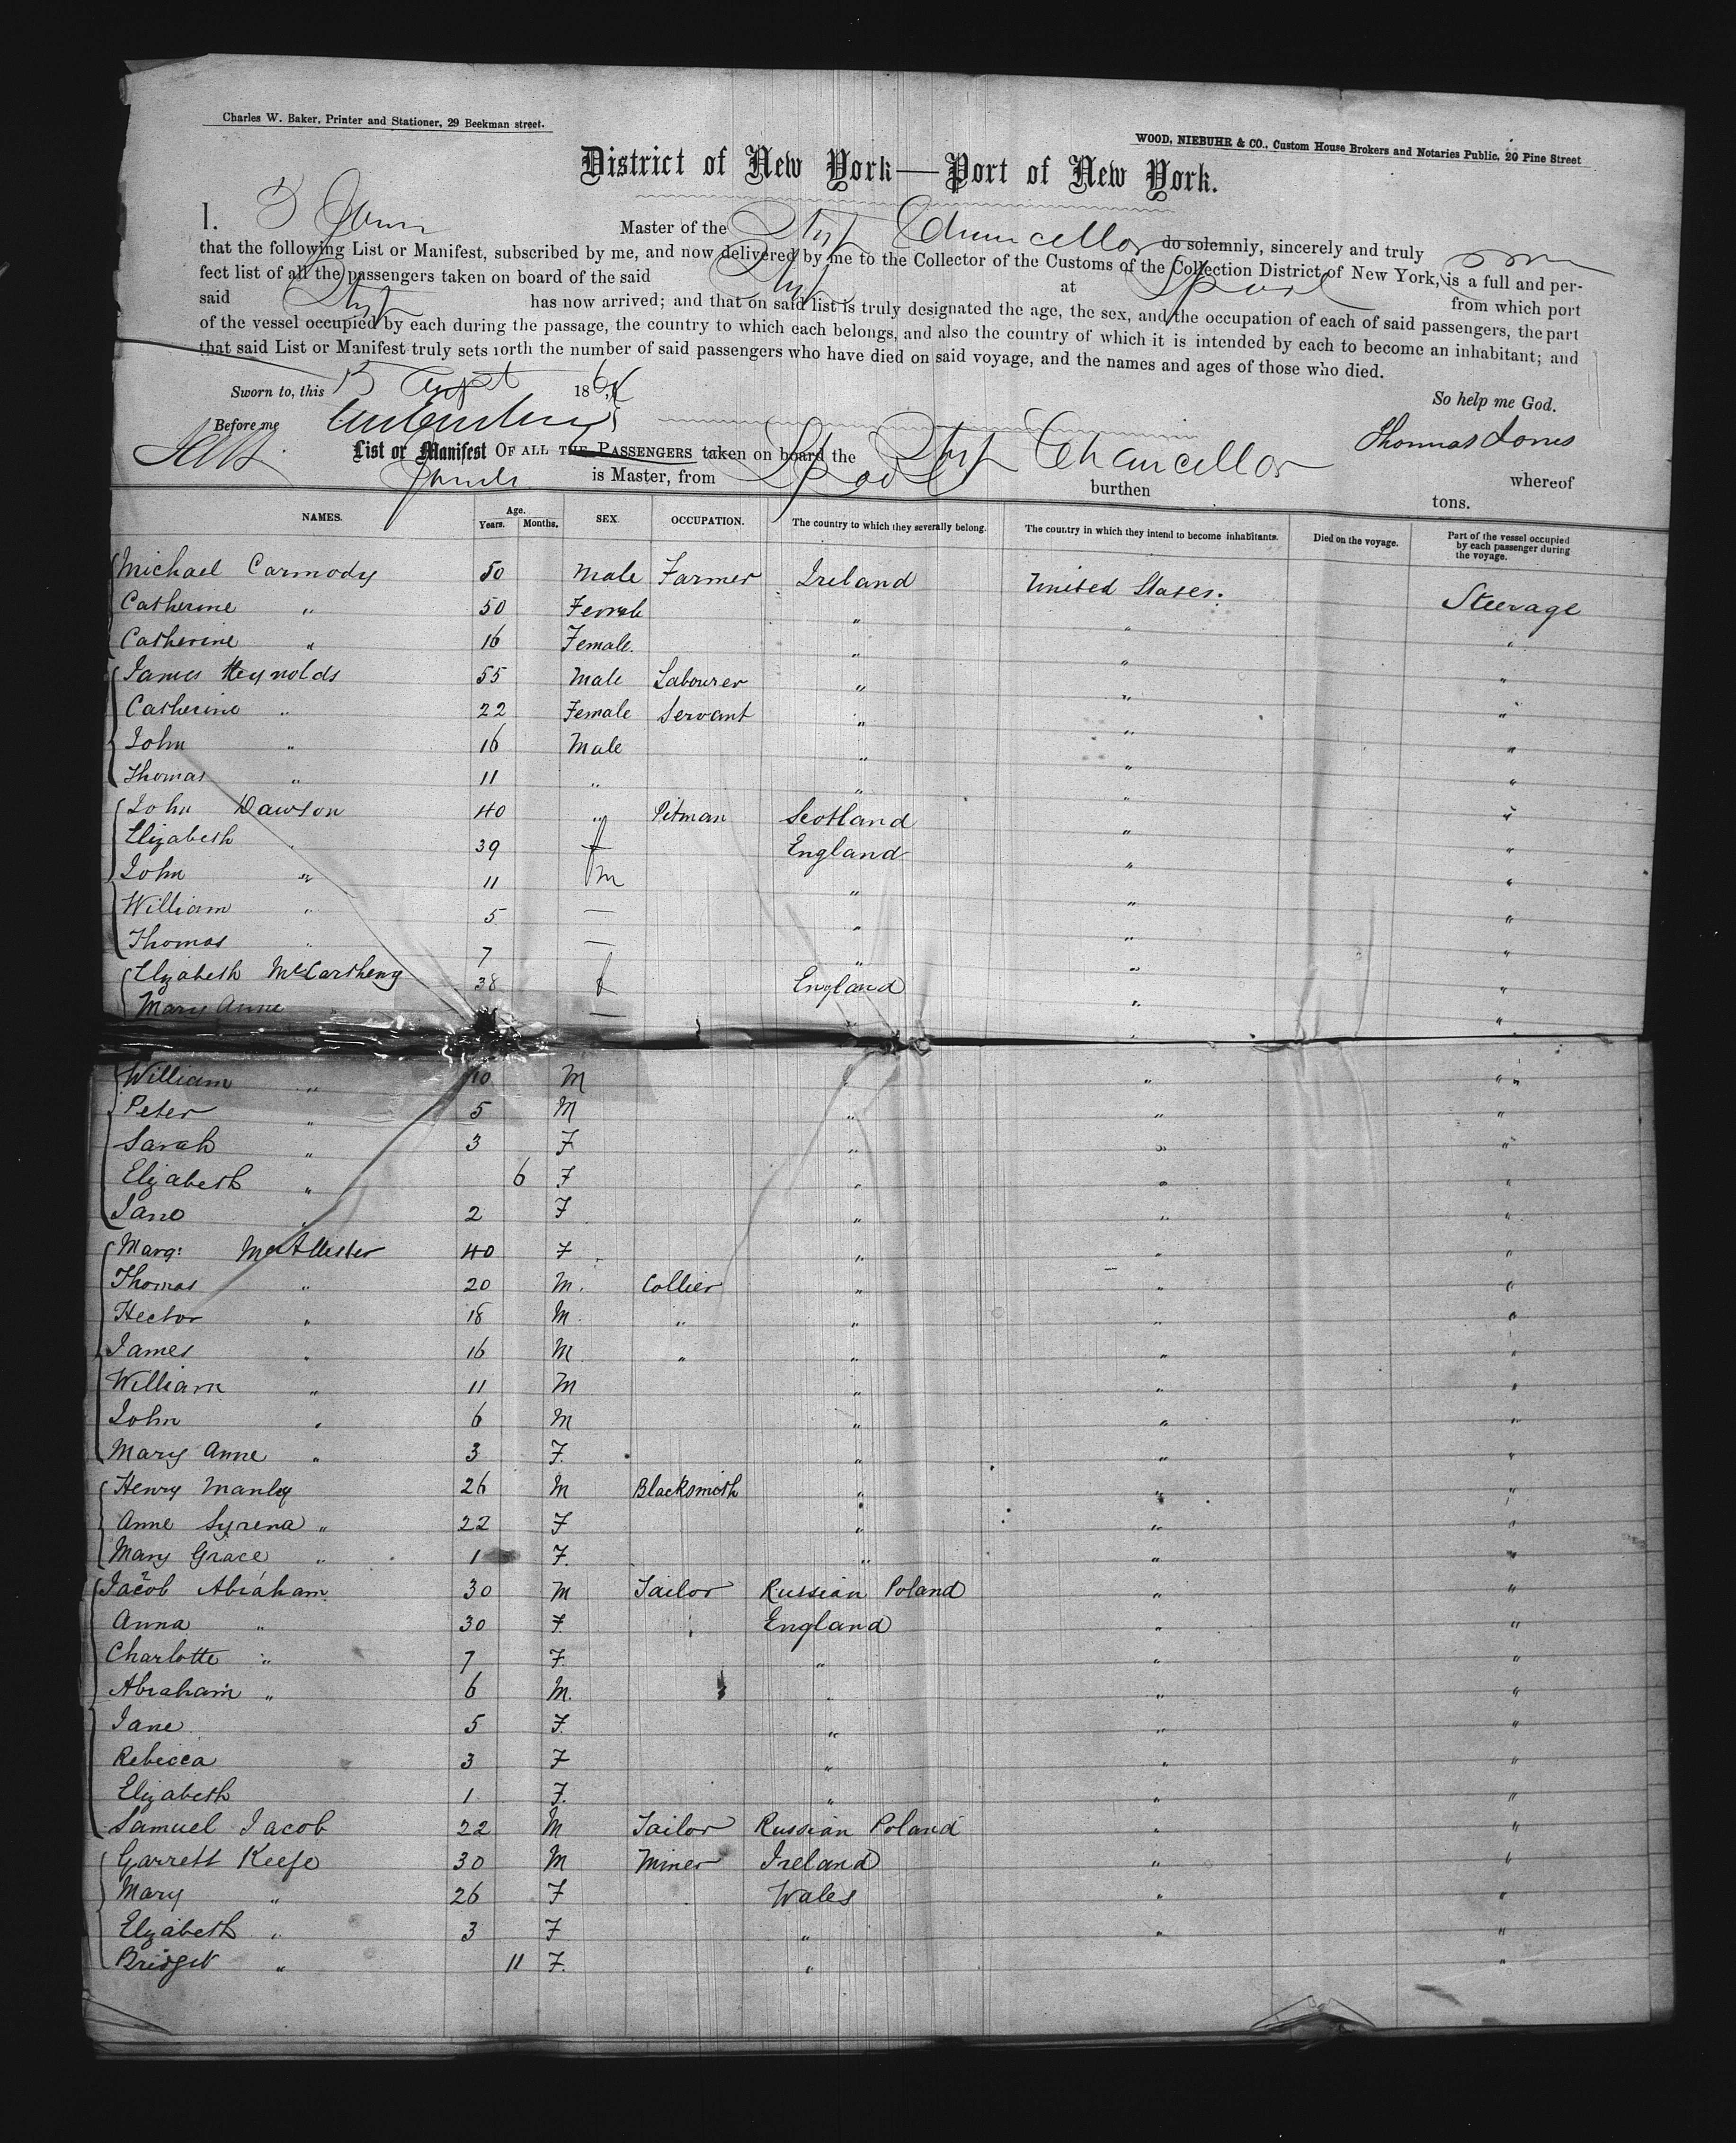 Charles W. Baker, Printer and Stationer, 29 Beekman street.
WOOD, NIEBUHR & CO., Custom House Brokers and Notaries Public, 20 Pine Street
District of New York—Port of New York.
I. Master of the Ship Chancellor do solemnly, sincerely and truly
that the following List or Manifest, subscribed by me, and now delivered by me to the Collector of the Customs of the Collection District of New York, is a full and per-
fect list of all the passengers taken on board of the said Ship at from which port
said Ship has now arrived; and that on said list is truly designated the age, the sex, and the occupation of each of said passengers, the part
of the vessel occupied by each during the passage, the country to which each belongs, and also the country of which it is intended by each to become an inhabitant; and
that said List or Manifest truly sets forth the number of said passengers who have died on said voyage, and the names and ages of those who died.
Sworn to, this 15 186 So help me God.
Before me Thomas Jones
List or Manifest OF ALL THE PASSENGERS taken on board the Ship Chancellor whereof
is Master, from burthen tons.
NAMES. Age. Years. Months. SEX. OCCUPATION. The country to which they severally belong. The country in which they intend to become inhabitants. Died on the voyage. Part of the vessel occupied by each passenger during the voyage.
Michael Carmody 50 Male Farmer Ireland United States. Steerage
Catherine " 50 Female " " "
Catherine " 16 Female. " " "
James Reynolds 55 Male Labourer " " "
Catherine " 22 Female Servant " " "
John " 16 Male " " "
Thomas " 11 " " " "
John Dawson 40 " Pitman Scotland " "
Elizabeth " 39 f England " "
John " 11 m " " "
William " 5 — " " "
Thomas " 7 — " " "
Elizabeth McCartheny 38 f England " "
Mary Anne " — " "
William " 10 M " " "
Peter " 5 M " " "
Sarah " 3 F " " "
Elizabeth " 6 F " " "
Jane " 2 F " " "
Marg: McAllister 40 F " " "
Thomas " 20 M. Collier " " "
Hector " 18 M. " " " "
James " 16 M " " " "
William " 11 M " " "
John " 6 M " " "
Mary Anne " 3 F. " " "
Henry Manley 26 M Blacksmith " " "
Anne Syrena " 22 F " " "
Mary Grace " 1 F. " " "
Jacob Abraham 30 M Tailor Russian Poland " "
Anna " 30 F. England " "
Charlotte " 7 F. " " "
Abraham " 6 M. " " "
Jane 5 F. " " "
Rebecca 3 F " " "
Elizabeth 1 F. " " "
Samuel Jacob 22 M Tailor Russian Poland " "
Garrett Keefe 30 M Miner Ireland " "
Mary " 26 F Wales " "
Elizabeth " 3 F " " "
Bridget " 11 F. " "